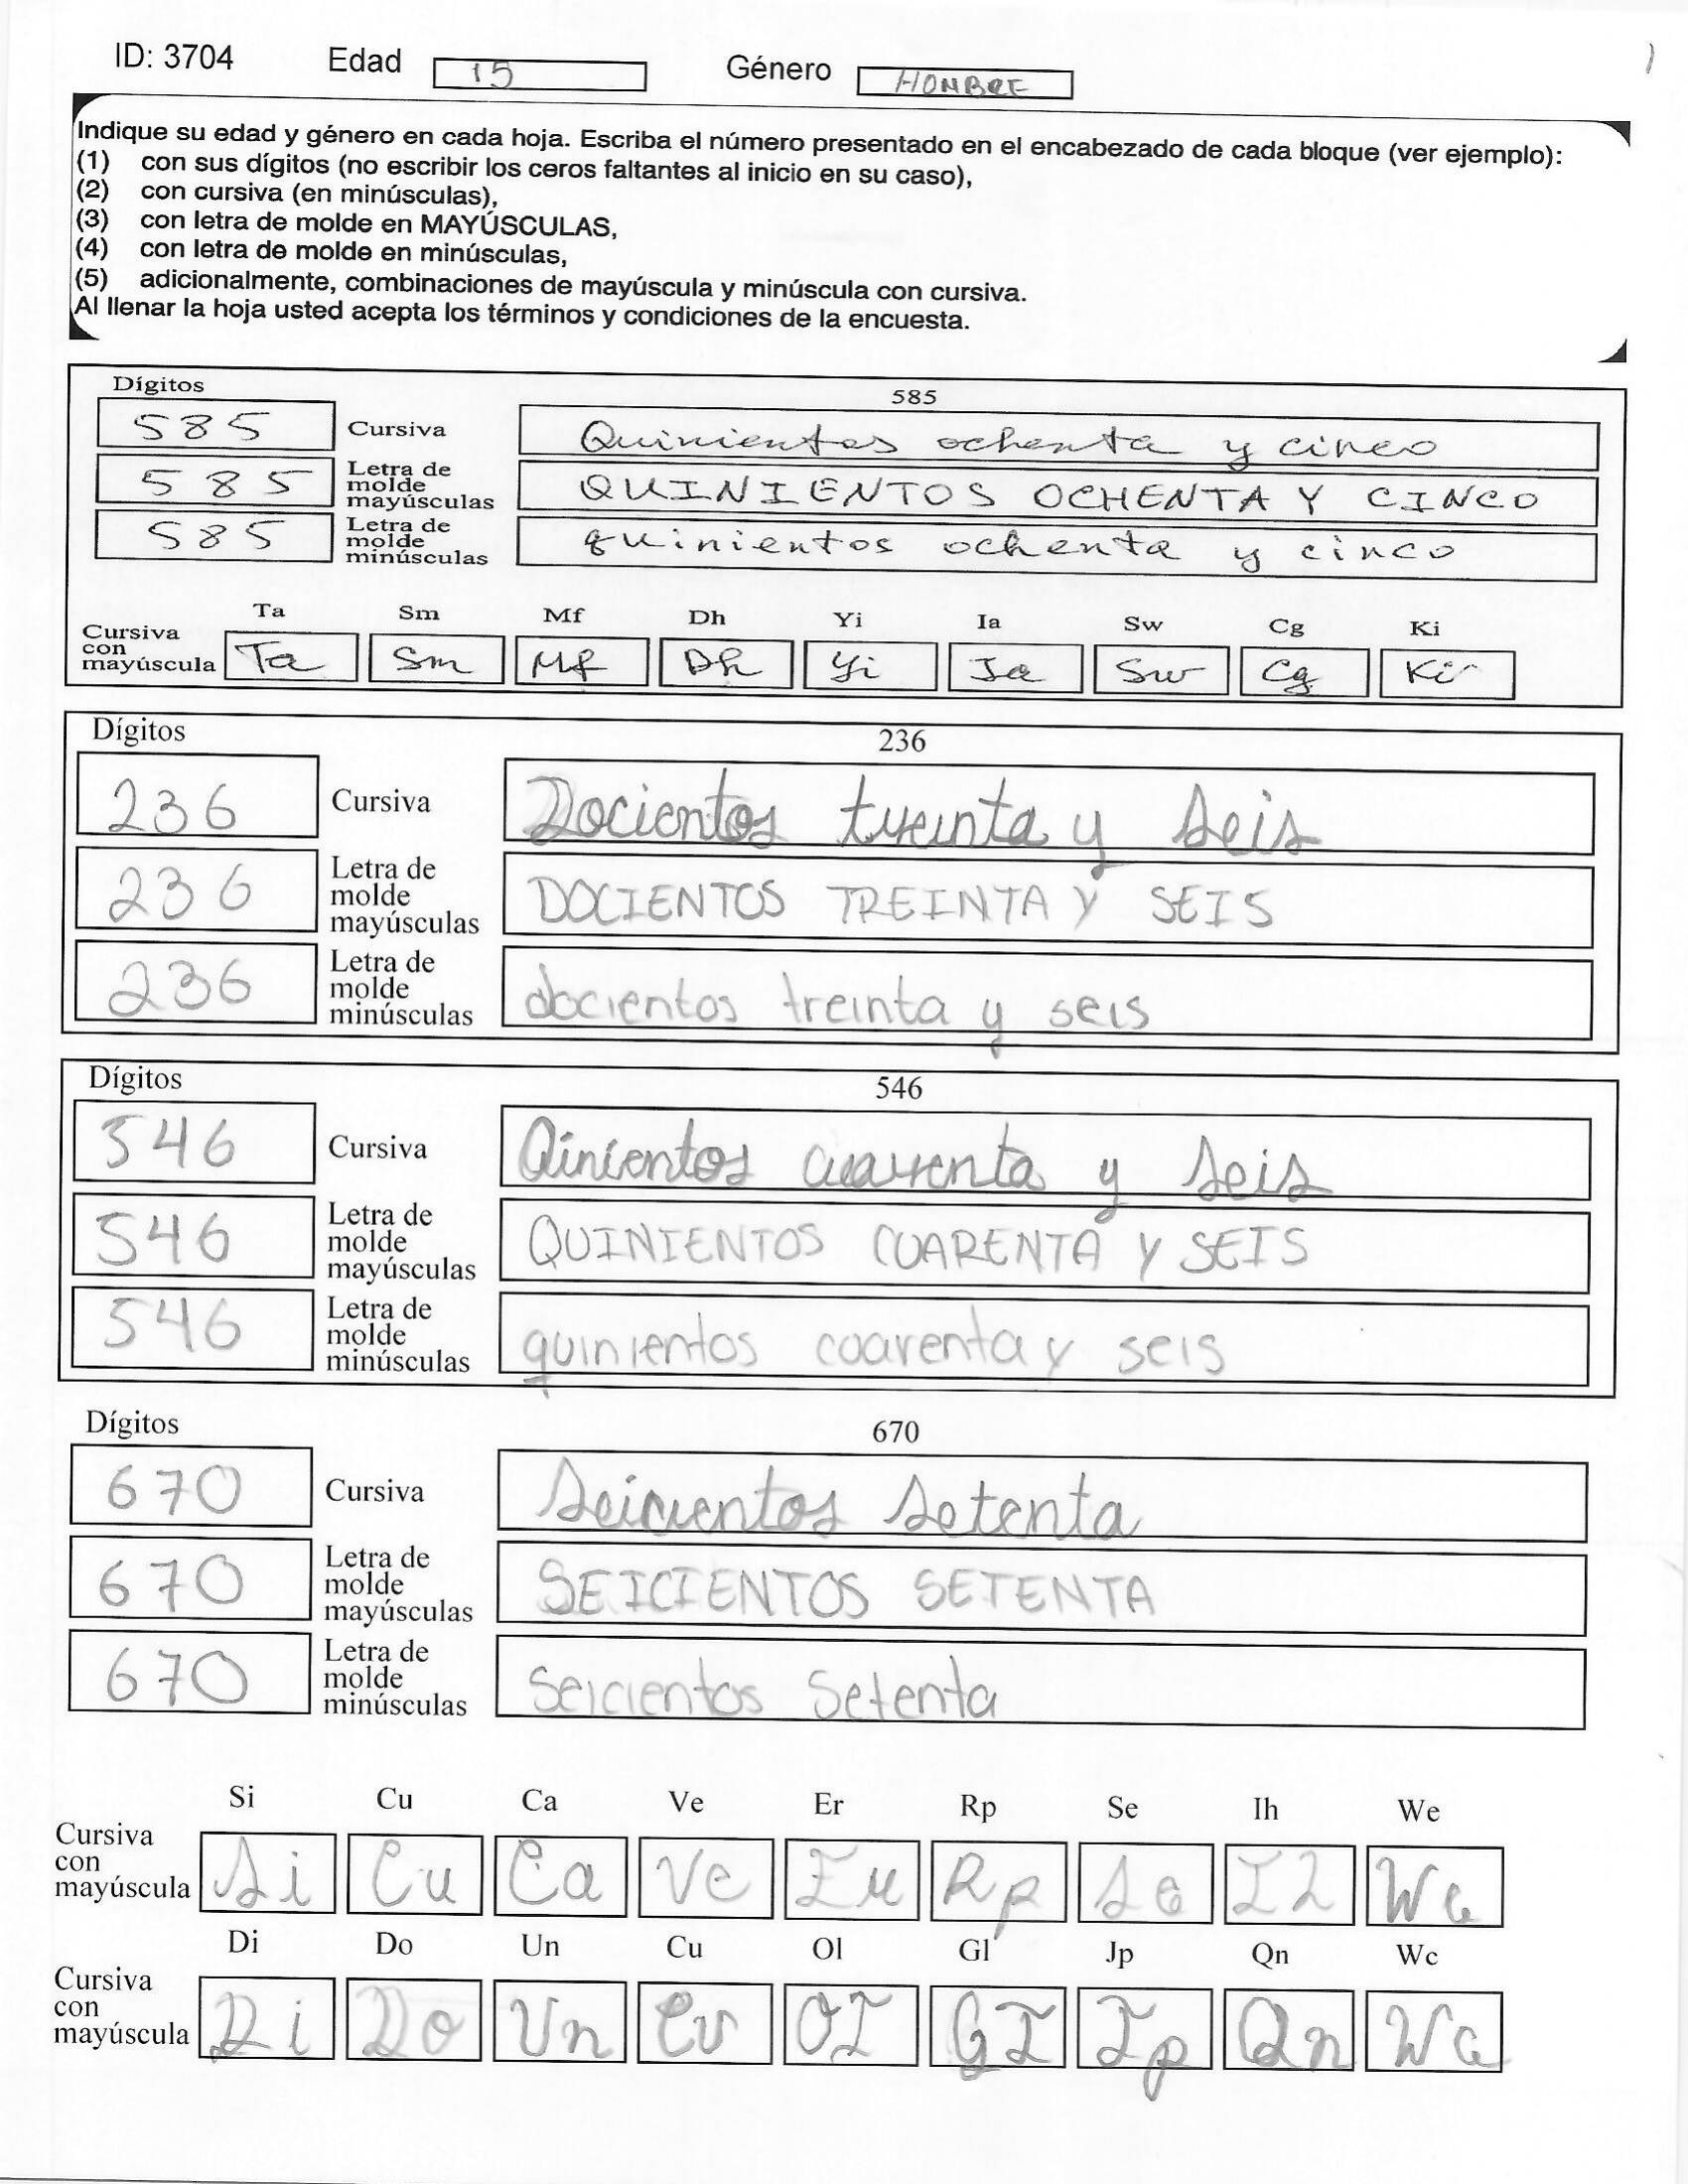 ID: 3704 Edad 15 Género HOMBRE
Indique su edad y género en cada hoja. Escriba el número presentado en el encabezado de cada bloque (ver ejemplo):
(1) con sus dígitos (no escribir los ceros faltantes al inicio en su caso),
(2) con cursiva (en minúsculas),
(3) con letra de molde en MAYÚSCULAS,
(4) con letra de molde en minúsculas,
(5) adicionalmente, combinaciones de mayúscula y minúscula con cursiva.
Al llenar la hoja usted acepta los términos y condiciones de la encuesta.
Dígitos 585
585 Cursiva Quinientos ochenta y cinco
585 Letra de molde mayúsculas QUINIENTOS OCHENTA Y CINCO
585 Letra de molde minúsculas quinientos ochenta y cinco
Ta Sm Mf Dh Yi Ia Sw Cg Ki
Cursiva con mayúscula Ta Sm Mf Dh Yi Ia Sw Cg Ki
Dígitos 236
236 Cursiva Docientos treinta y seis
236 Letra de molde mayúsculas DOCIENTOS TREINTA Y SEIS
236 Letra de molde minúsculas docientos treinta y seis
Dígitos 546
546 Cursiva Qinientos cuarenta y seis
546 Letra de molde mayúsculas QUINIENTOS CUARENTA Y SEIS
546 Letra de molde minúsculas quinientos coarenta y seis
Dígitos 670
670 Cursiva Seicientos setenta
670 Letra de molde mayúsculas SEICIENTOS SETENTA
670 Letra de molde minúsculas Seicientos Setenta
Si Cu Ca Ve Er Rp Se Ih We
Cursiva con mayúscula Si Cu Ca Ve Er Rp Se Ih We
Di Do Un Cu Ol Gl Jp Qn Wc
Cursiva con mayúscula Di Do Un Cu OI GI Jp Qn Wc